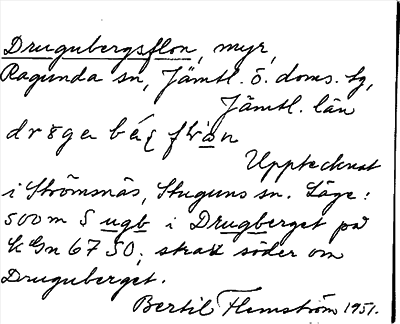 Drugubergsflon, myr,
Ragunda sn, Jämtl. ö. doms. tg,
Jämtl. län
Upptecknat
i Strömsnäs, Stuguns sn. Läge:
500 m S ugb i Drugberget på
k Gn 6750; strax söder om
Druguberget.
Bertil Flemström 1951.